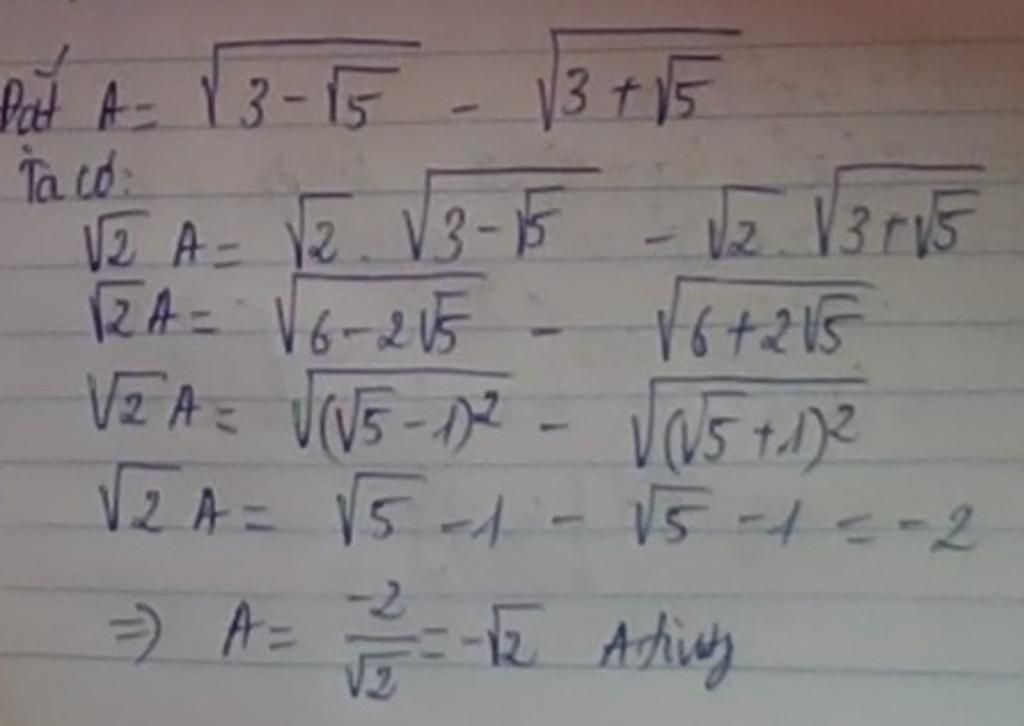 Đặt A = √(3 - √5) - √(3 + √5)
Ta có:
√2 A = √2 . √(3 - √5) - √2 . √(3 + √5)
√2 A = √(6 - 2√5) - √(6 + 2√5)
√2 A = √((√5 - 1)²) - √((√5 + 1)²)
√2 A = √5 - 1 - √5 - 1 = -2
⇒ A = -2/√2 = -√2